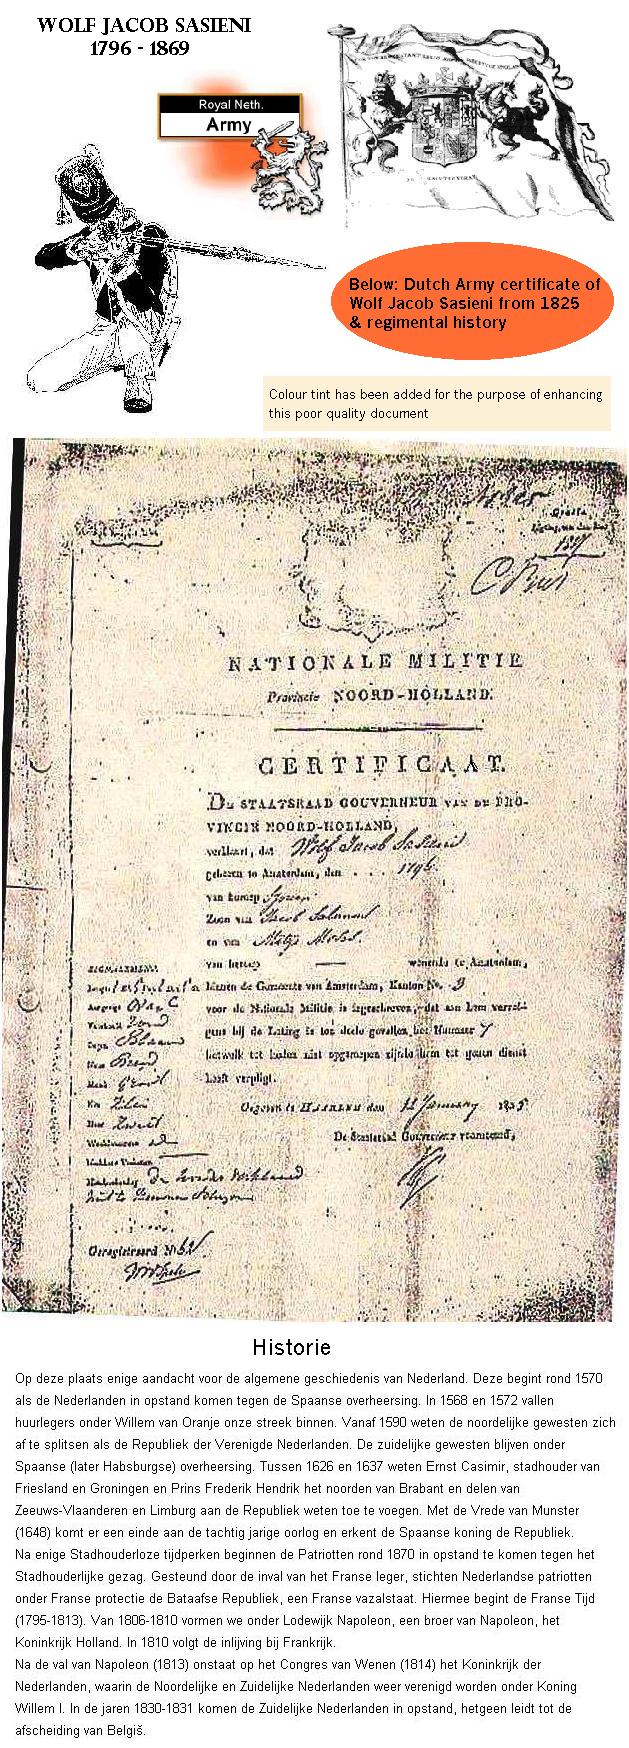 WOLF JACOB SASIENI
1796 - 1869
Royal Neth.
Army
Below: Dutch Army certificate of
Wolf Jacob Sasieni from 1825
& regimental history
Colour tint has been added for the purpose of enhancing
this poor quality document
NATIONALE MILITIE
Provincie NOORD-HOLLAND.
CERTIFICAAT.
DE STAATSRAAD GOUVERNEUR VAN DE PRO-
VINCIE NOORD-HOLLAND,
verklaart, dat Wolf Jacob Sasieni
geboren te Amsterdam, den . . . . 1796
van beroep
Zoon van Jacob Salomon
en van
van beroep — wonende te Amsterdam,
binnen de Gemeente van Amsterdam, Kanton No. 3
voor de Nationale Militie is ingeschreven, dat aan hem vervol-
gens bij de Loting is ten deele gevallen het Nummer 7
hetwelk tot heden niet opgeroepen zijnde hem tot geenen dienst
heeft verpligt.
Gegeven te HAARLEM den 12 January 1825
De Staatsraad Gouverneur voornoemd,
SIGNALEMENT
Aangezigt
Voorhoofd Rond
Oogen Blaauw
Neus Breed
Mond
Kin Klein
Haar Zwart
Wenkbraauwen id
Geregistreerd No.
Historie
Op deze plaats enige aandacht voor de algemene geschiedenis van Nederland. Deze begint rond 1570
als de Nederlanden in opstand komen tegen de Spaanse overheersing. In 1568 en 1572 vallen
huurlegers onder Willem van Oranje onze streek binnen. Vanaf 1590 weten de noordelijke gewesten zich
af te splitsen als de Republiek der Verenigde Nederlanden. De zuidelijke gewesten blijven onder
Spaanse (later Habsburgse) overheersing. Tussen 1626 en 1637 weten Ernst Casimir, stadhouder van
Friesland en Groningen en Prins Frederik Hendrik het noorden van Brabant en delen van
Zeeuws-Vlaanderen en Limburg aan de Republiek weten toe te voegen. Met de Vrede van Munster
(1648) komt er een einde aan de tachtig jarige oorlog en erkent de Spaanse koning de Republiek.
Na enige Stadhouderloze tijdperken beginnen de Patriotten rond 1870 in opstand te komen tegen het
Stadhouderlijke gezag. Gesteund door de inval van het Franse leger, stichten Nederlandse patriotten
onder Franse protectie de Bataafse Republiek, een Franse vazalstaat. Hiermee begint de Franse Tijd
(1795-1813). Van 1806-1810 vormen we onder Lodewijk Napoleon, een broer van Napoleon, het
Koninkrijk Holland. In 1810 volgt de inlijving bij Frankrijk.
Na de val van Napoleon (1813) onstaat op het Congres van Wenen (1814) het Koninkrijk der
Nederlanden, waarin de Noordelijke en Zuidelijke Nederlanden weer verenigd worden onder Koning
Willem I. In de jaren 1830-1831 komen de Zuidelijke Nederlanden in opstand, hetgeen leidt tot de
afscheiding van Belgiš.